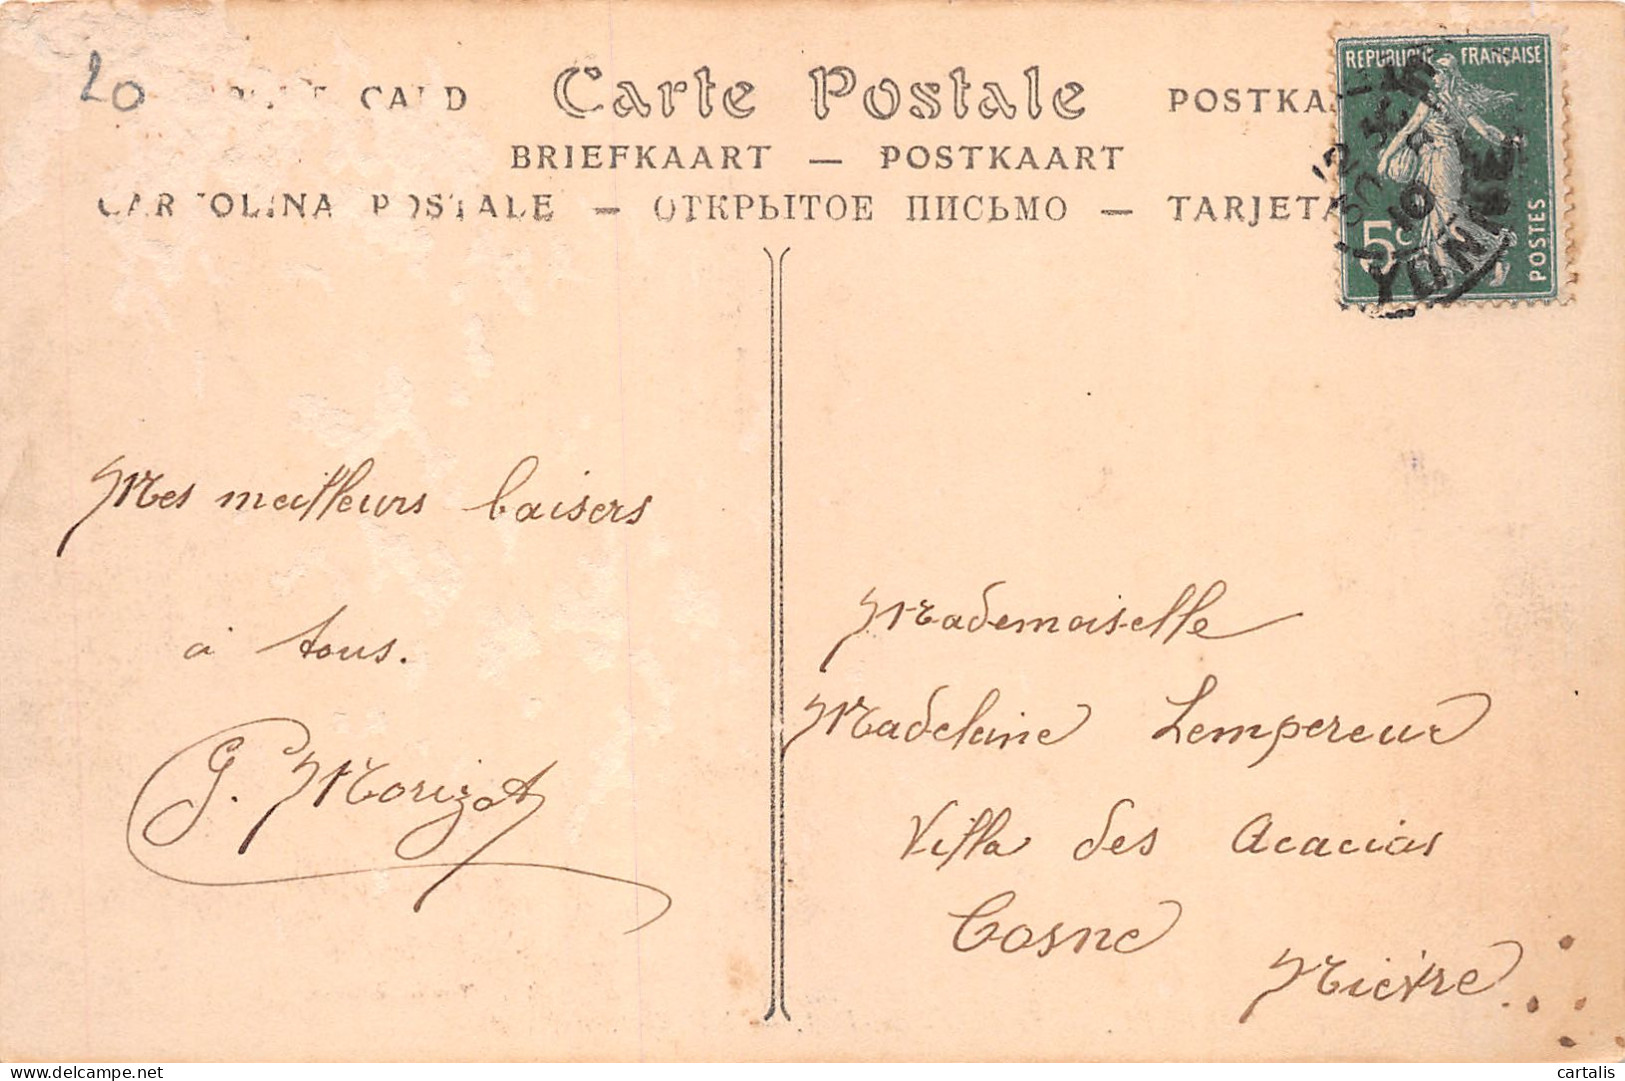 20
CARD Carte Postale POSTKA
BRIEFKAART — POSTKAART
CARTOLINA POSTALE — ОТКРЫТОЕ ПИСЬМО — TARJETA
REPUBLIQUE FRANÇAISE
5c
POSTES
YONNE
10
Mes meilleurs baisers
à tous.
G. Morizot
Mademoiselle
Madeleine Lempereur
Villa des Acacias
Cosne
Nièvre.
delcampe.net
cartalis